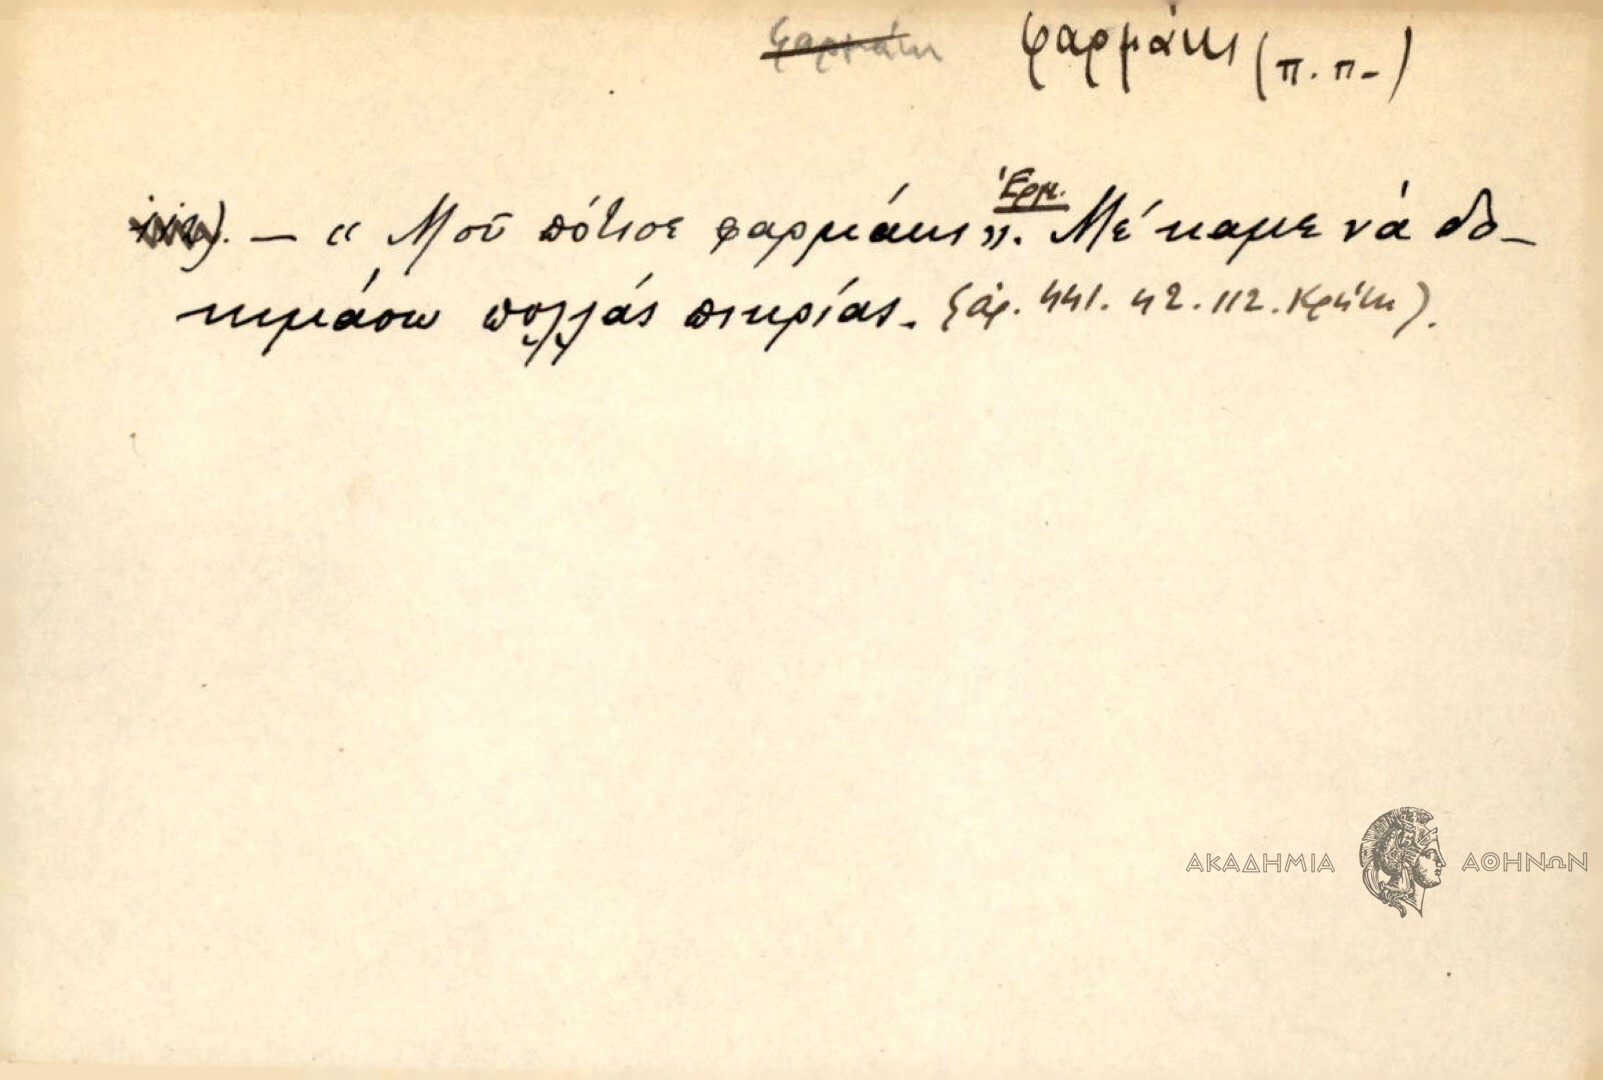 φαρμάκι φαρμάκι (π.π.)
— « Μοῦ πότισε φαρμάκι ». Ἑρμ. Μέ καμε νά δο-
κιμάσω πολλάς πικρίας. (ἀρ. 441. 42. 112. Κρήτη).
ΑΚΑΔΗΜΙΑ ΑΘΗΝΩΝ